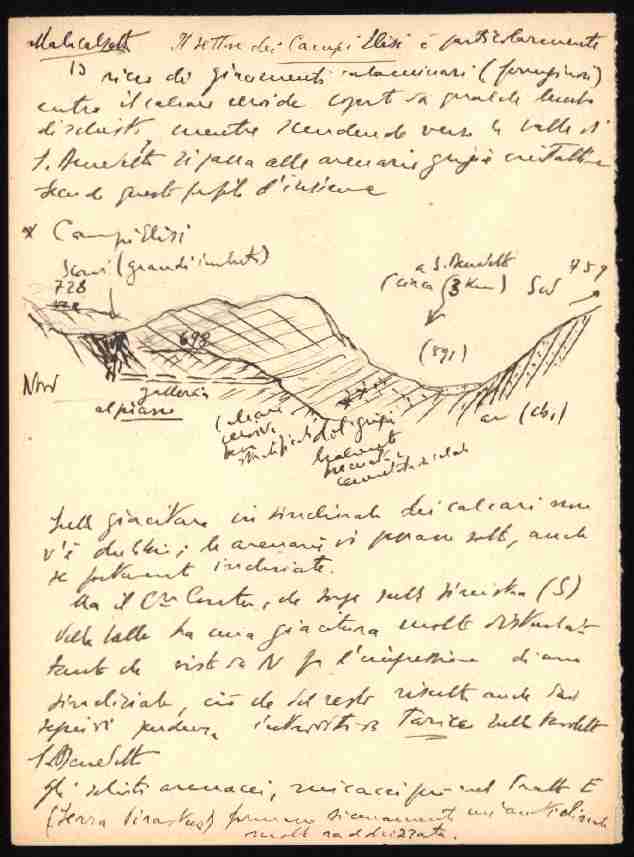 Malacalzetta Il settore dei Campi Elisi è particolarmente
ricco di giacimenti calaminari (ferruginosi)
entro il calcare ceroide coperti da grande
di schisti, mentre scendendo verso la valle di
S. Benedetto si passa alle arenarie grigie
secondo questo profilo d'insieme
x Campi Elisi
Scavi (grandi imbuti)
728
a S. Benedetto
(circa 3 Km)
SW 759
698
(591)
NW
galleria
al piano
calcari
ceroidi
stratificati
dol. grigie
localmente
ar (cb1)
Sulla giacitura in sinclinale dei calcari non
v'è dubbio; le arenarie vi passano sotto, anche
se fortemente inclinate.
Ma il Cuc. Contu, che sorge sulla sinistra (S)
della valle ha una giacitura molto disturbata
tanto che vista da N fa l'impressione di una
sinclinale, ciò che del resto risulta anche dai
seguenti intravvisti da Tarica sulla
S. Benedetto
Gli schisti arenacei, micacei poi nel tratto E
(Serra Pirastus) formano sicuramente un'anticlinale
molto raddrizzata.